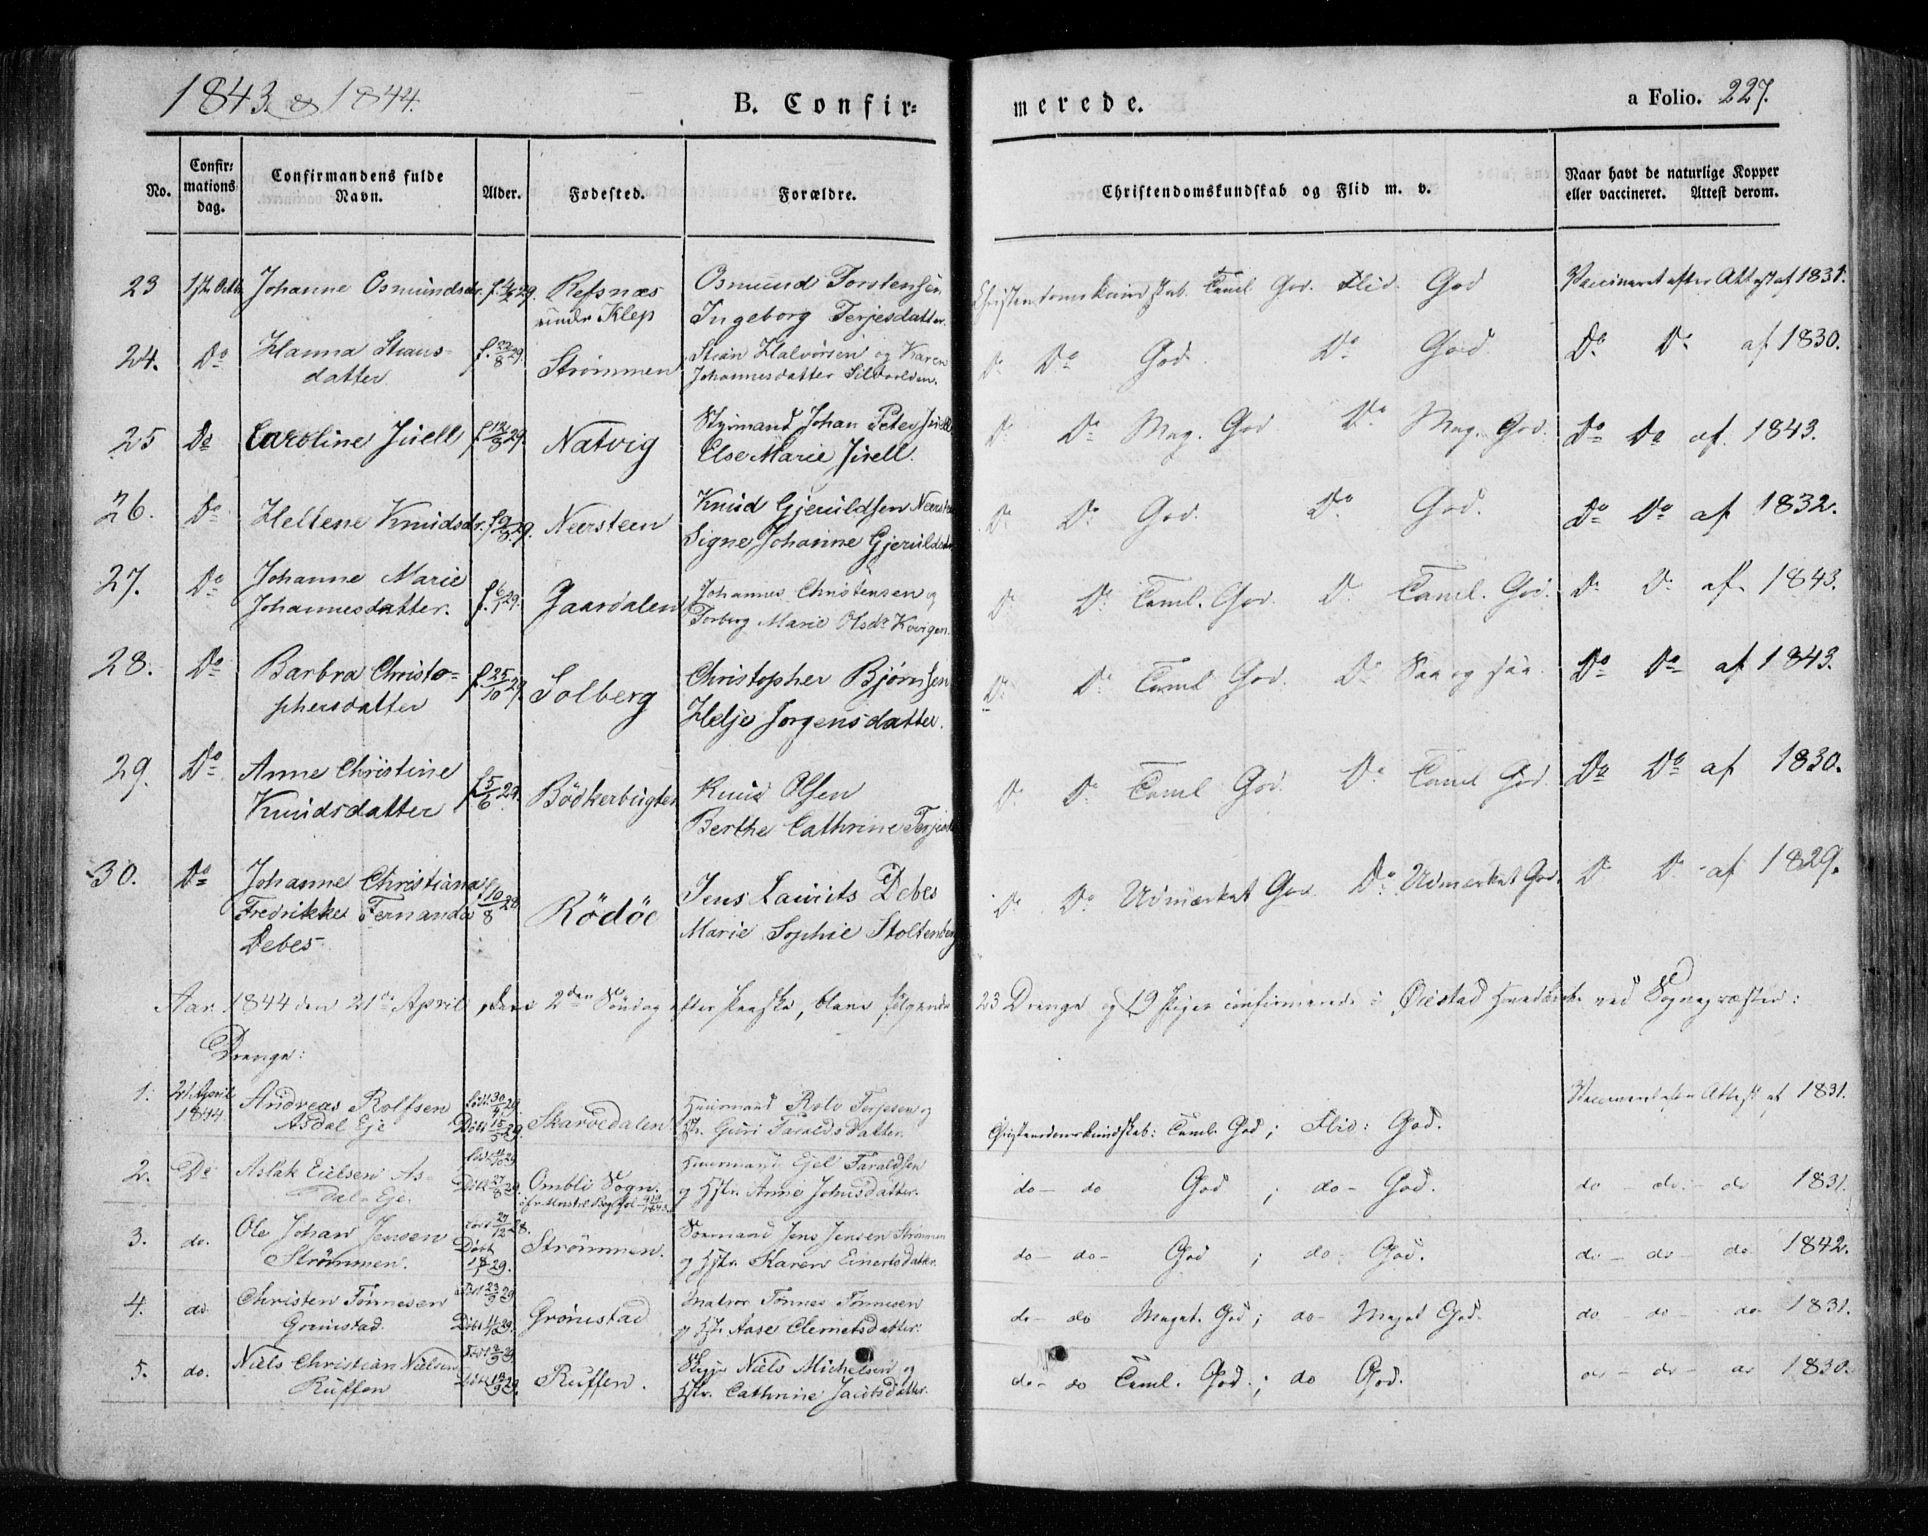 1843 & 1844.
B. Confir=
merede.
a Folio. 227.
No.
Confir=
mations
dag.
Confirmandens fulde
Navn.
Alder.
Fødested.
Forældre.
Christendomskundskab og Flid m. v.
Naar havt de naturlige Kopper
eller vaccineret. Attest derom.
23 1ste Octbr Johanne Osmundsdr. f. 4/9 29. Refsnæs under Klep
Osmund Torstensen
Ingeborg Terjesdatter.
Christendomskundskab. Taml. God. Flid. God
Vaccineret efter Attest af 1831.
24. Do Hanna Stians-
datter f. 22/8 29. Strømmen
Stian Halvorsen og Karen
Johannesdatter
Do Do God. Do God
Do Do af 1830.
25 Do Caroline Juell f. 29. Natvig
Styrmand Johan Peter Juell
Else Marie Juell.
Do Do Meg. God. Do Meg. God.
Do Do af. 1843.
26. Do Hellene Knudsdr. 29. Neersteen
Knud Gjeruldsen
Signe Johanne
Do Do God. Do God.
Do Do af 1832.
27. Do Johanne Marie
Johannesdatter. f. 6/1 29. Gaardalen
Johannes Christensen og
Torberg Marie Olsdr
Do Do Taml. God. Do Taml. God.
Do Do af 1843.
28. Do Barbra Christo-
phersdatter f. 25/10 29. Solberg
Christopher Bjørnsen
Helje Jørgensdatter.
Do Do Taml God. Do Saa og saa.
Do Do af 1843.
29. Do Anne Christine
Knudsdatter f. 5/6 29. Bödkerbugten
Knud Olsen
Berthe Cathrine
Do Do Taml God. Do Taml God.
Do Do af 1830.
30. Do Johanne Christiana
Fredrikke Fernanda
Debes f. 10/8 28 Rödöe
Jens Laurits Debes
Marie Sophie Stoltenberg
Do Do Udmærket God Do Udmærket God.
Do Do af 1829.
Aar 1844 den 21de April, den 2den Søndag efter Paaske, bleve følgende 23 Drenge og 19 Piger confirmerede i Øiestad Hovedkirke ved Sognepræsten:
Drenge:
1. 21. April
1844 Andreas Rolfsen
Asdal Eje født 30/4 29. Døbt 15/5 29. Skarvedalen
Huusmand Rolv Terjesen og
Hstr. Guri Taraldsdatter.
Christendomskundskab: Taml. God; Flid: God.
Vaccineret efter Attest af 1831.
2. Do Aslak Eielsen As-
dal Eje. Ombli Sogn.
Huusmand Ejel Taraldsen
og Hstr. Anne Johnsdatter.
do - do God; do - God.
do - do - do 1831.
3. do. Ole Johan Jensen
Strömmen. født 27/12 28. Døbt 29. Strömmen.
Sømand Jens Jensen Strömmen
og Hstr. Karen Einertsdatter.
do - do - God; do God.
do - do - do 1842.
4. do Christen Tönnesen
Grönestad. Grönestad
Matros Tönnes Tönnesen
og Hstr. Aase Clemetsdatter.
do - do Meget. God; do - Meget God.
do do - do 1831.
5. do. Niels Christian Nielsen
Ruffen Ruffen.
Niels Michelsen og
Hstr. Cathrine Jacobsdatter.
do - do Taml. God.; do God.
do - do - do 1830.